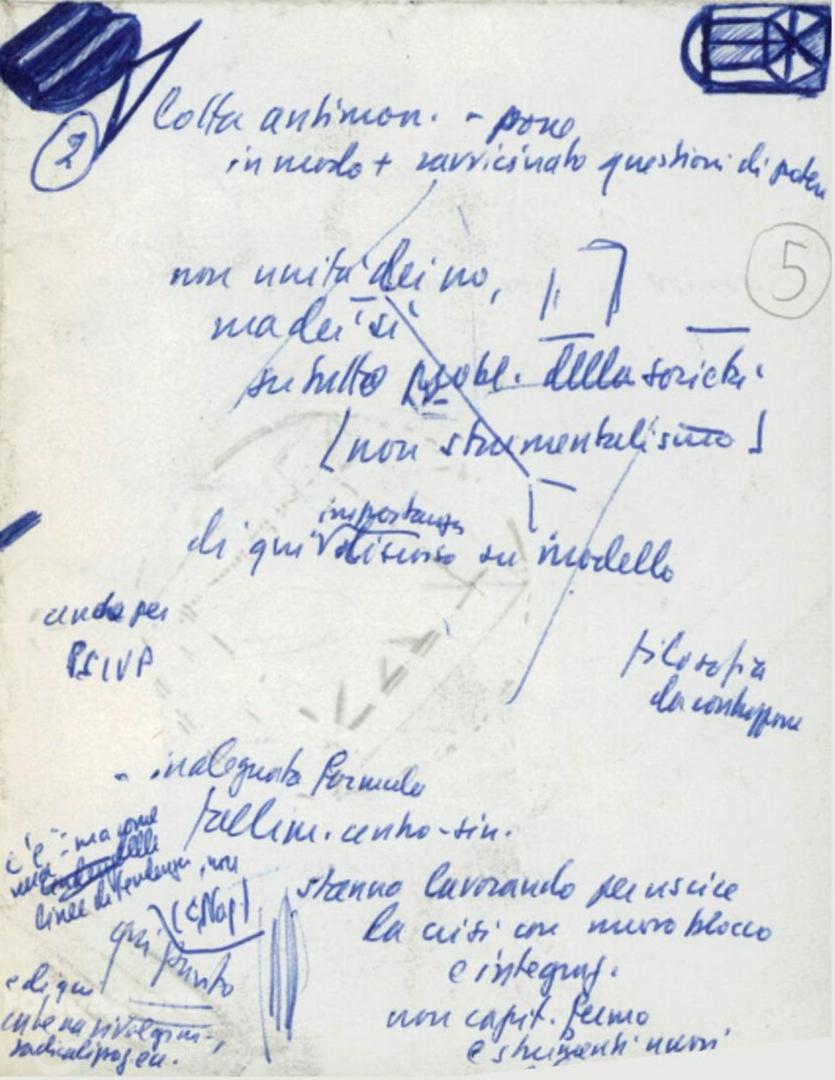 2
Lotta antimon. - pone
in modo + ravvicinato questioni di potere
5
non unità dei no,
ma dei sì
su tutto probl. della società
[non strumentalismo]
importanza
di qui discorso su modello
anche per
PSIUP
filosofia
da contrapporre
- inadeguata formula
fallim. centro-sin.
c'è - ma come
linee di tendenza, non
(CNap)
qui punto
e di qui
stanno lavorando per uscire
la crisi con nuovo blocco
e integraz.
non capit. fermo
e strumenti nuovi